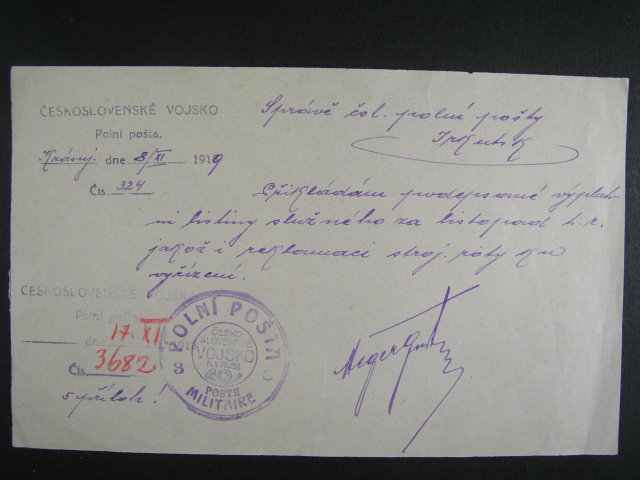 ČESKOSLOVENSKÉ VOJSKO
Polní pošta.
Krásnj. dne 8/XI 1919
Čís. 324
Správě čsl. polní pošty
Irkutsk
Přikládám podepsané výplat-
ní listiny služného za listopad t. r.
jakož i reklamaci stroj. roty ku
vyřízení.
ČESKOSLOVENSKÉ VOJSKO
Polní pošta
17. XI
dne 191
Čís. 3682
5 příloh!
POLNÍ POŠTA
8
ČESKO
SLOVENSKÉ
VOJSKO
NA RUSI
POSTE
MILITAIRE